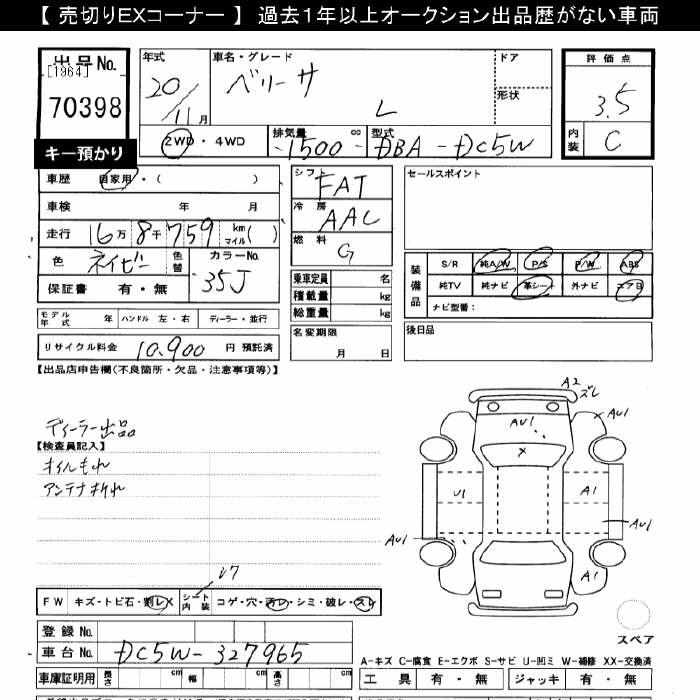 【 売切りEXコーナー 】 過去１年以上オークション出品歴がない車両
出 品 No.
[1964]
70398
キー預かり
年式
20/11月
車名・グレード
ベリーサ
L
ドア
形状
評 価 点
3.5
内装
C
2WD・4WD
排気量
1500 cc
型式
DBA - DC5W
車歴 自家用・( )
車検 年 月
走行 16万 8千 759 km マイル( )
色 ネイビー
色替
カラーNo.
35J
保証書 有・無
シフト
FAT
冷房
AAC
燃料
G
セールスポイント
装備品
S/R 純A/W P/S P/W ABS
純TV 純ナビ 革シート 外ナビ エアB
ナビ型番:
乗車定員 名
積載量 kg
総重量 kg
モデル年式 年 ハンドル 左・右 ディーラー・並行
名変期限
月 日
後日品
リサイクル料金 10,900 円 預託済
【出品店申告欄(不良箇所・欠品・注意事項等)】
ディーラー出品
【検査員記入】
オイルもれ
アンテナ折れ
A2
ズレ
AU1
AU1
X
U1
A1
AU1
AU1
A1
スペア
シワ
FW キズ・トビ石・割レX
シート内装
コゲ・穴・汚レ・シミ・破レ・スレ
登録 No.
車台 No. DC5W-327965
車庫証明用
長さ cm 幅 cm 高さ cm
A-キズ C-腐食 E-エクボ S-サビ U-凹ミ W-補修 XX-交換済
工 具 有・無 ジャッキ 有・無